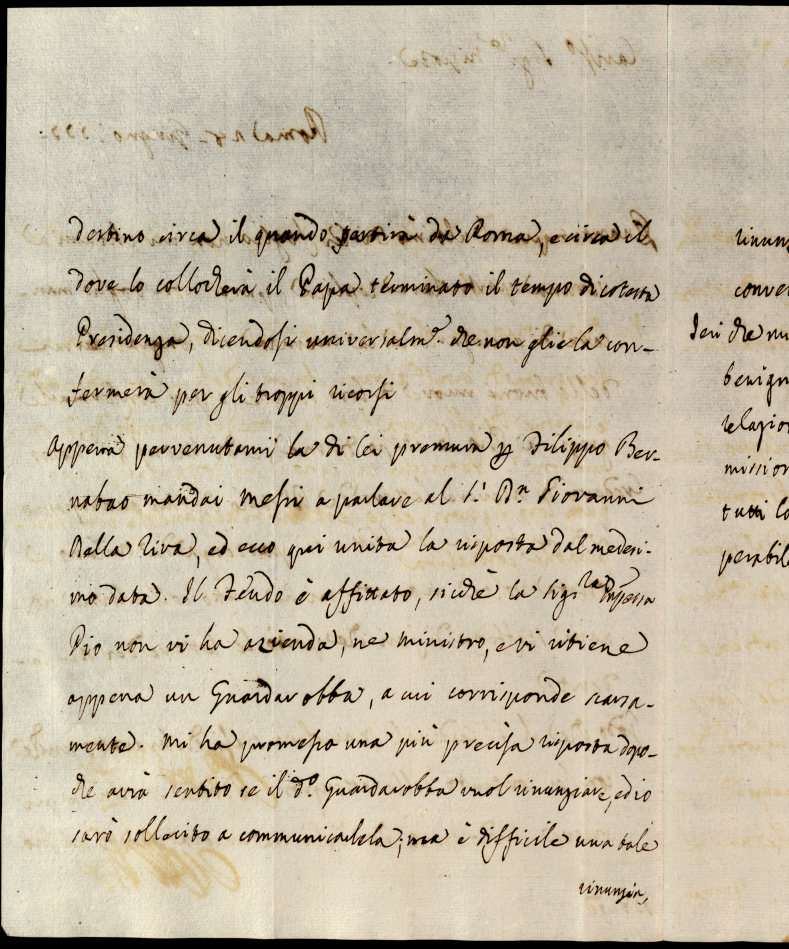 destino circa il quando partirà da Roma, e circa il
dove lo collocherà il Papa terminato il tempo di cotesta
Presidenza, dicendosi universalm.e che non glie la con-
fermerà per gli troppi ricorsi
Appena pervenutami la di lei premura per Filippo Ber-
nabao mandai messi a parlare al S.r Bn. Giovanni
Della Riva, ed ecco qui unita la risposta dal medesi-
mo data. Il Feudo è affittato, sicchè la Sig.ra Ppessa
Pio non vi ha azienda, ne ministro, e vi ritiene
appena un Guardarobba, a cui corrisponde scarsa-
mente. Mi ha promessa una più precisa risposta dopo-
che avrà sentito se il d.o Guardarobba vuol rinunziare, ed io
sarò sollecito a communicarlela; ma è difficile una tale
rinunzia,
rinunz
conve
Ieri che
benign
relazion
mission
tutti lo
perabile